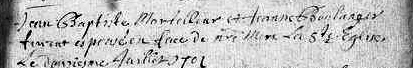 Jean Baptiste Marteilleur et Jeanne Boulanger
furent espousé en face de nre Mere La Ste Eglise
Le douziesme Juillet 1701